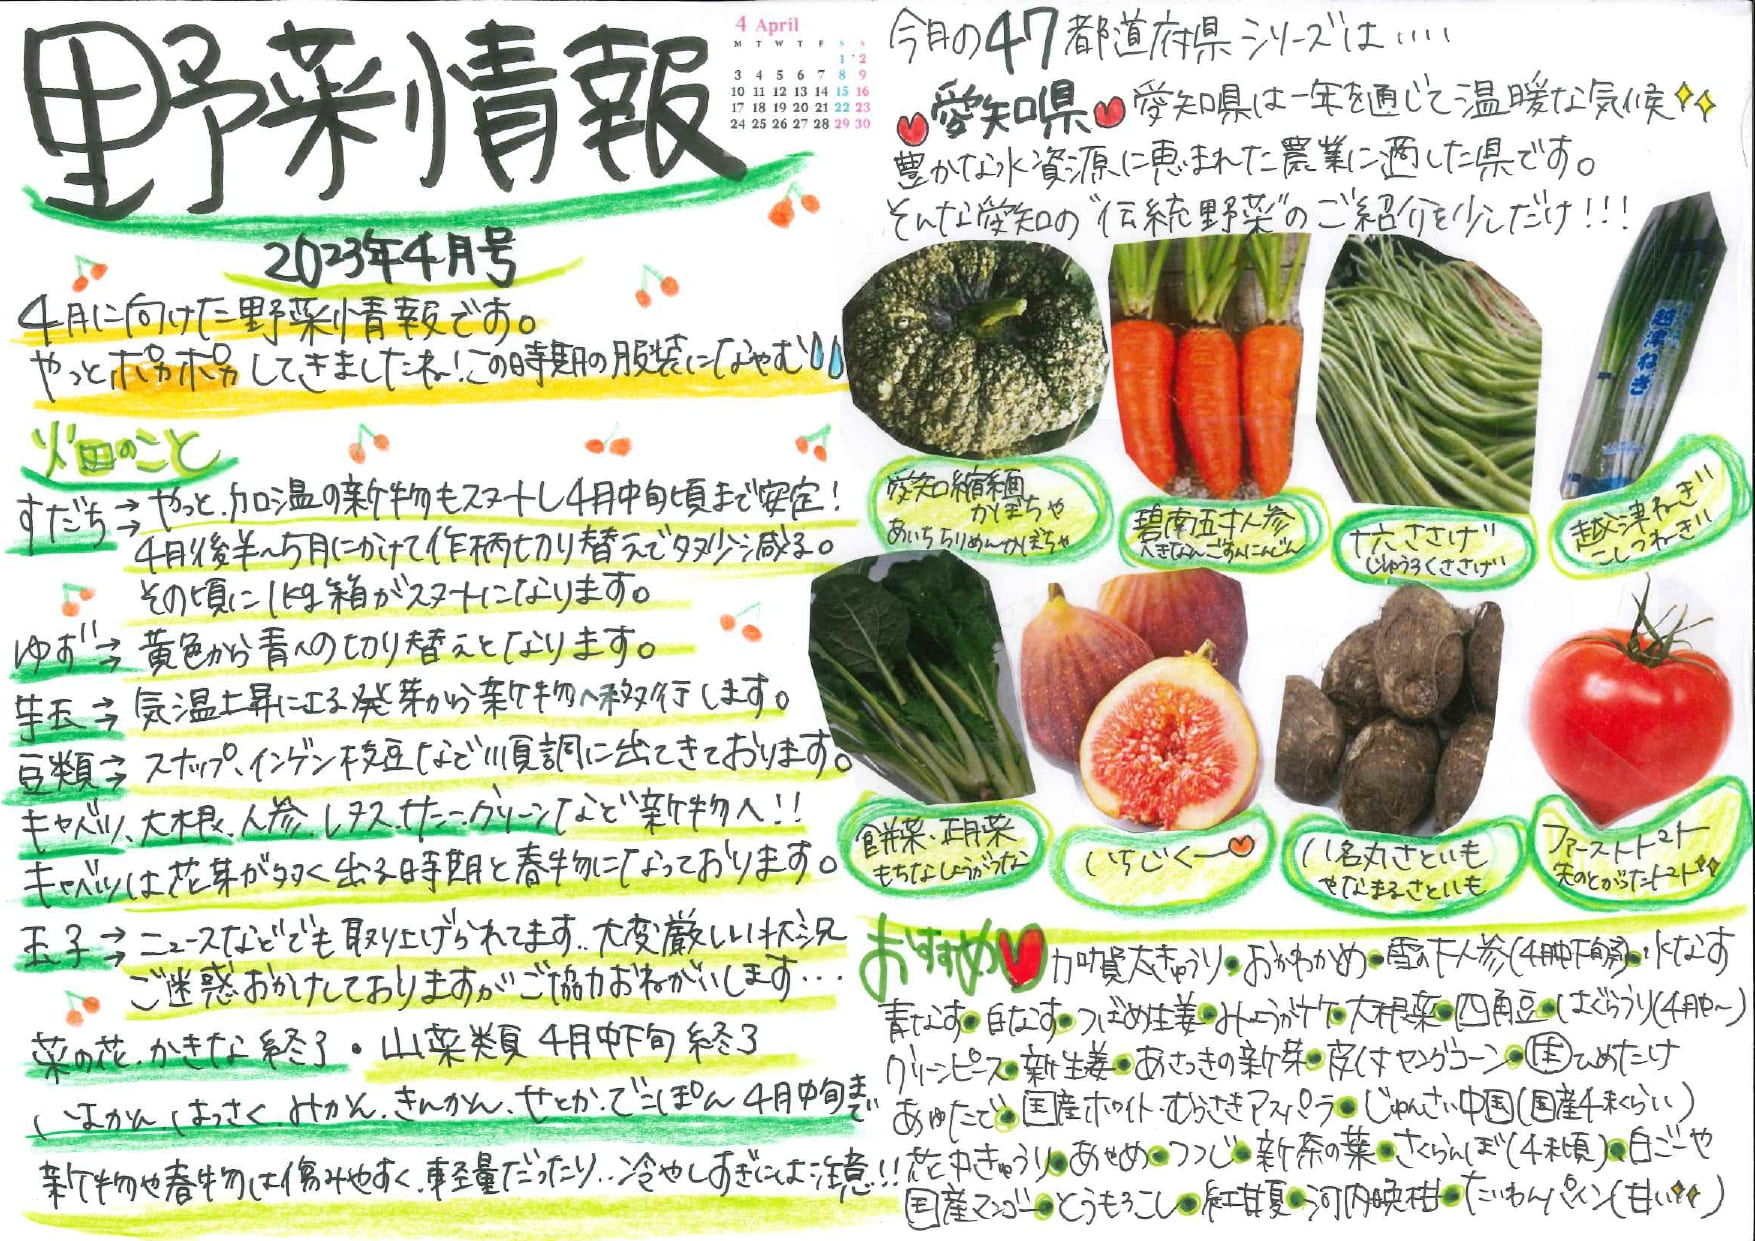 野菜情報
4 April
M T W T F S S
1 2
3 4 5 6 7 8 9
10 11 12 13 14 15 16
17 18 19 20 21 22 23
24 25 26 27 28 29 30
2023年4月号
4月に向けた野菜情報です。
やっとポカポカしてきましたね!この時期の服装になやむ
畑のこと
すだち→やっと、加温の新物もスタートし4月中旬頃まで安定!
4月後半〜5月にかけて作柄切り替えで多少減る。
その頃に1kg箱がスタートになります。
ゆず→黄色から青への切り替えとなります。
芋玉→気温上昇による発芽から新物へ移行します。
豆類→スナップ、インゲン、枝豆などが順調に出てきております。
キャベツ、大根、人参、レタス、サニー、グリーンなど新物へ!!
キャベツは花芽が多く出る時期と春物になっております。
玉子→ニュースなどでも取り上げられてます..大変厳しい状況
ご迷惑おかけしておりますがご協力おねがいします...
菜の花、かきな終了・山菜類4月中下旬終了
いよかん、はっさく、みかん、きんかん、せとか、でこぽん4月中旬まで
新物や春物は傷みやすく、軽量だったり..冷やしすぎには注意!!
今月の47都道府県シリーズは....
愛知県 愛知県は一年を通じて温暖な気候
豊かな水資源に恵まれた農業に適した県です。
そんな愛知の"伝統野菜"のご紹介を少しだけ!!!
越津ねぎ
愛知縮緬かぼちゃ
あいちちりめんかぼちゃ
碧南五寸人参
へきなんごすんにんじん
十六ささげ
じゅうろくささげ
越津ねぎ
こしつねぎ
餅菜、正月菜
もちなしょうがつな
いちじく
八名丸さといも
やなまるさといも
ファーストトマト
先のとがったトマト
おすすめ 加賀太きゅうり・おかわかめ・雪の下人参(4月中下旬予)・水なす
青なす・白なす・つばめ生姜・みょうがタケ・大根菜・四角豆・はぐらうり(4月中〜)
グリーンピース・新生姜・あさつきの新芽・皮むきヤングコーン・生ひめたけ
あゆたで・国産ホワイト・むらさきアスパラ・じゅんさい中国(国産4末くらい)
花丸きゅうり・あやめ・つつじ・新茶の葉・さくらんぼ(4末頃)・白ごーや
国産マンゴー・とうもろこし・紅甘夏・河内晩柑・たいわんパイン(甘い)